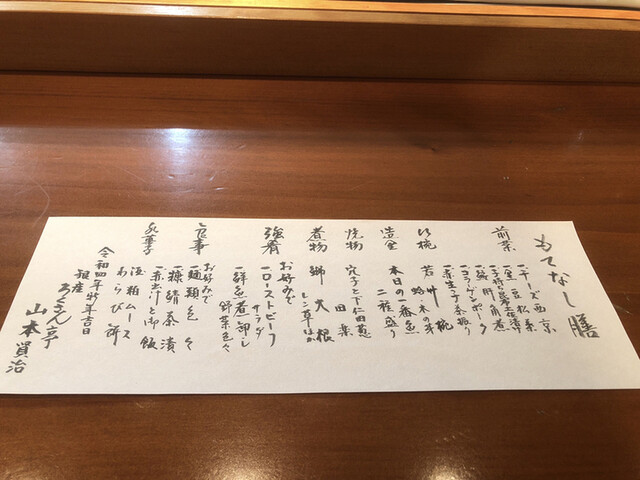 もてなし膳
前菜
一、チーズ西京
一、金豆松葉
一、鮟肝角煮
一、コーゲンポーク
一、赤生子茶振り
吸椀
若竹椀
蛤・木の芽
造里
本日の一番魚
二種盛り
焼物
穴子と下仁田葱
田楽
煮物
鰤大根
レン草ほか
強肴
お好みで
一、ローストビーフ
サラダ
一、鮮魚煮卸し
野菜色々
食事
お好みで
一、麺類色々
一、糠鯖茶漬
一、赤出汁と御飯
水菓子
酒粕ムース
わらび餅
令和四年新年吉日
雅座
山本賢治